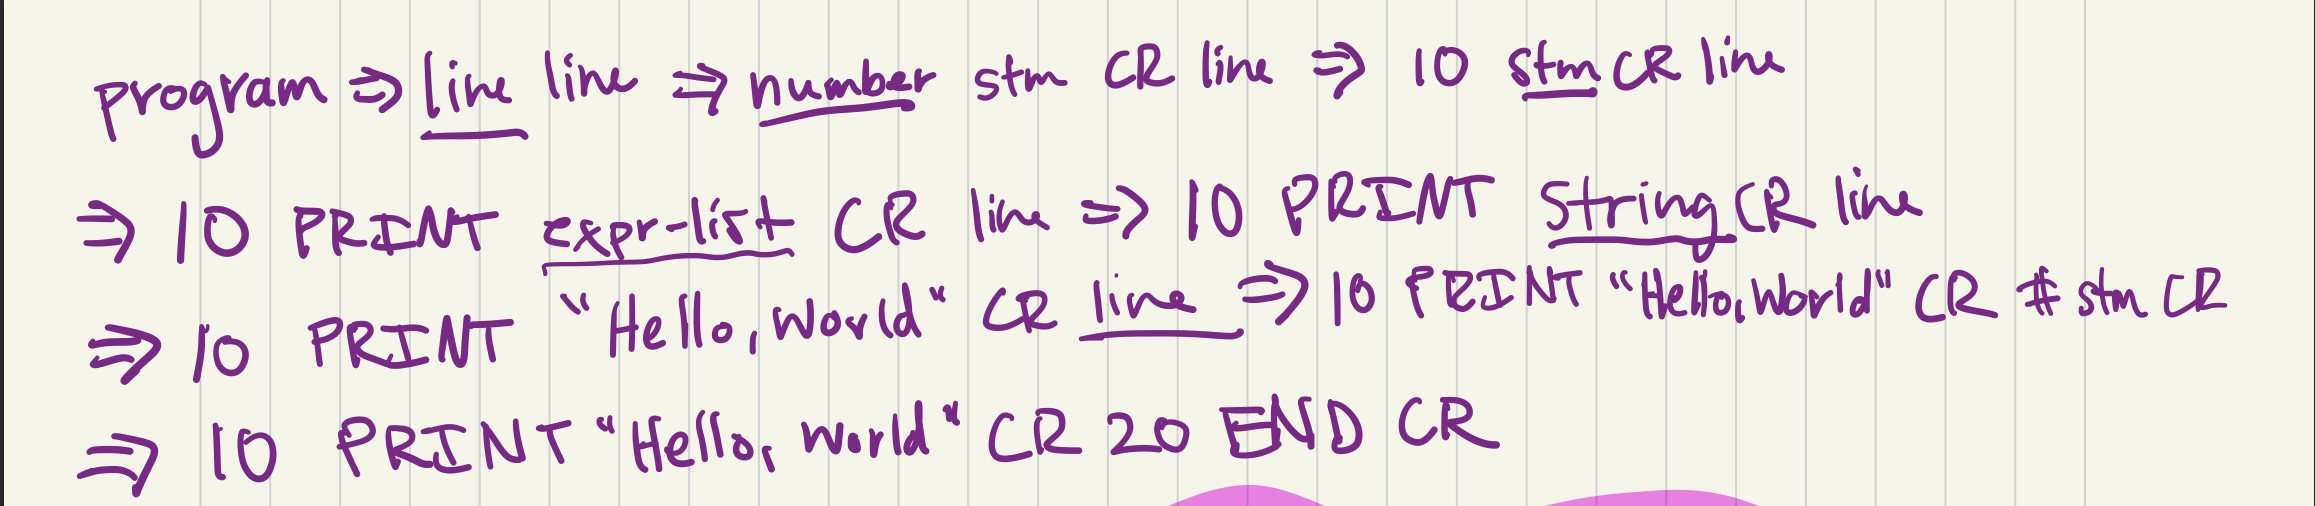 program ⇒ line line ⇒ number stm CR line ⇒ 10 stm CR line
⇒ 10 PRINT expr-list CR line ⇒ 10 PRINT string CR line
⇒ 10 PRINT "Hello, World" CR line ⇒ 10 PRINT "Hello, World" CR # stm CR
⇒ 10 PRINT "Hello, World" CR 20 END CR